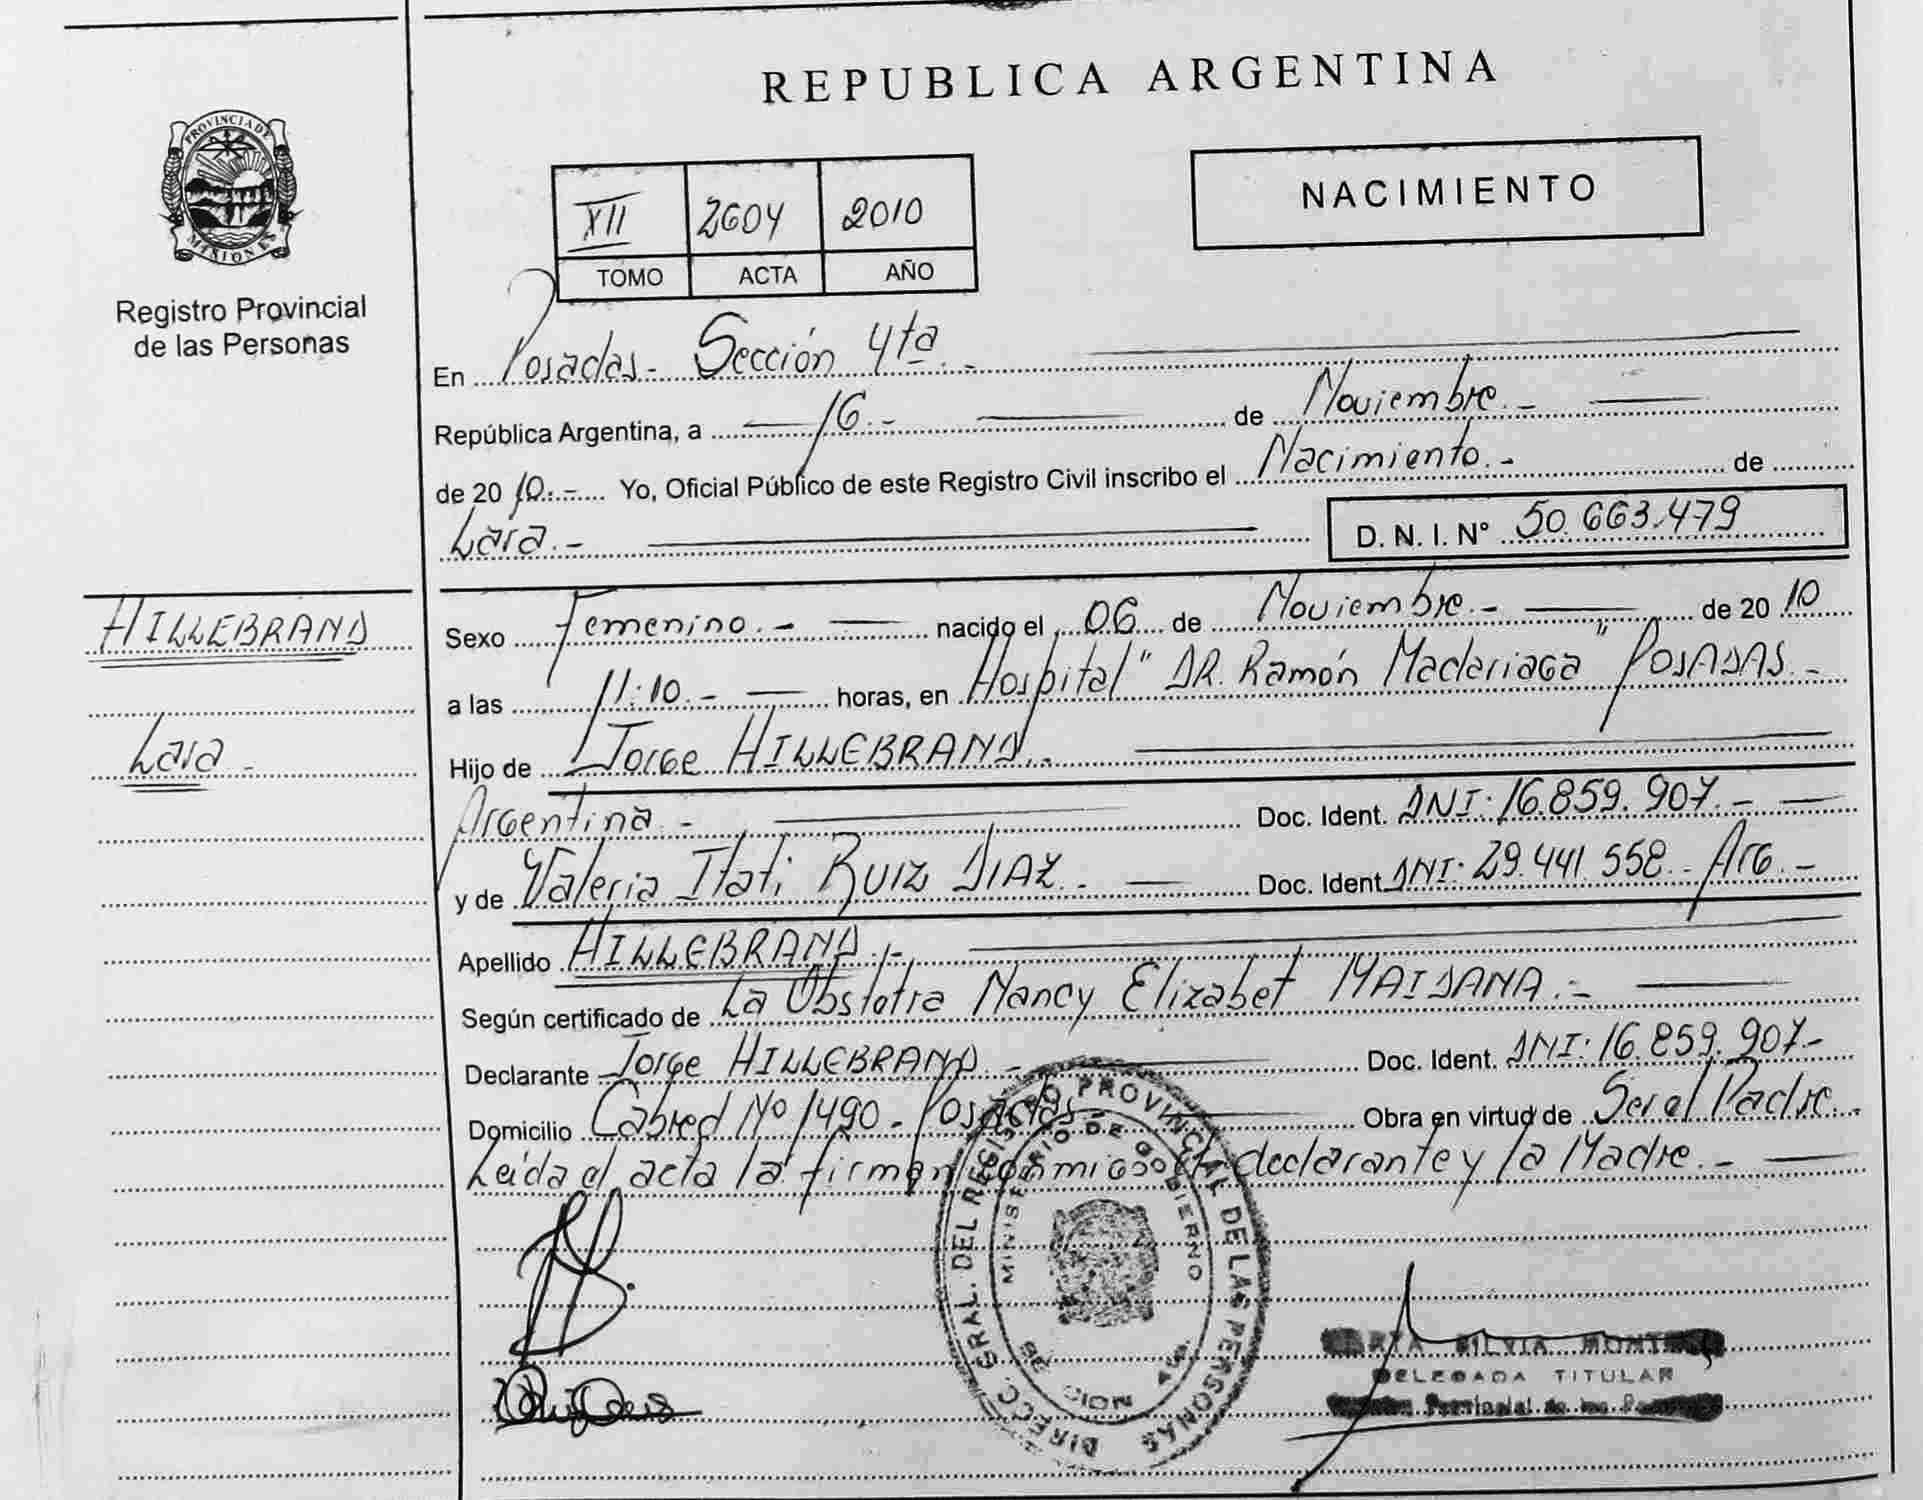 REPUBLICA ARGENTINA
PROVINCIA DE MISIONES
Registro Provincial
de las Personas
NACIMIENTO
XII 2604 2010
TOMO ACTA AÑO
En Posadas - Sección 4ta -
República Argentina, a 16.- de Noviembre.-
de 2010.- Yo, Oficial Público de este Registro Civil inscribo el Nacimiento.- de
Lara.- D. N. I. N° 50.663.479
HILLEBRAND
Lara -
Sexo Femenino.- nacido el 06 de Noviembre.- de 2010
a las 11:10.- horas, en Hospital "DR. Ramón Madariaga" POSADAS.-
Hijo de Jorge HILLEBRAND.-
Argentina.- Doc. Ident. DNI: 16.859.907.-
y de Valeria Itatí RUIZ DIAZ.- Doc. Ident DNI: 29.441.558.- Arg.-
Apellido HILLEBRAND.-
Según certificado de La Obstetra Nancy Elizabet MAIDANA.-
Declarante Jorge HILLEBRAND.- Doc. Ident. DNI: 16.859.907.-
Domicilio Cabred Nº 1490 - Posadas.- Obra en virtud de Ser el Padre.-
Leída el acta la firman conmigo el declarante y la Madre.-
DIRECC. GRAL. DEL REGISTRO PROVINCIAL DE LAS PERSONAS
MINISTERIO DE GOBIERNO
SILVIA
DELEGADA TITULAR
Provincial de las